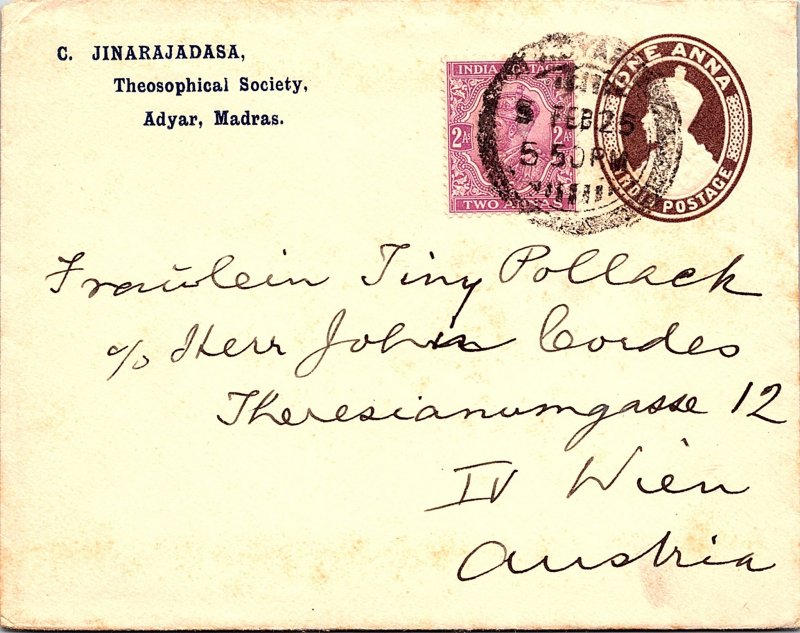 C. JINARAJADASA,
Theosophical Society,
Adyar, Madras.
INDIA POSTAGE
2As 2As
TWO ANNAS
ONE ANNA
INDIA POSTAGE
ADYAR
9 FEB 25
5 50 PM
Fraülein Tiny Pollack
c/o Herr John Cordes
Theresianumgasse 12
IV Wien
Austria